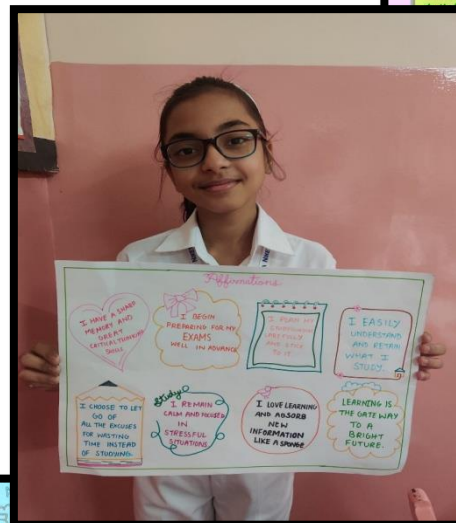 Affirmations
I HAVE A SHARP
MEMORY AND
GREAT
CRITICAL THINKING
SKILLS
I BEGIN
PREPARING FOR MY
EXAMS
WELL IN ADVANCE
I PLAN MY
CAREFULLY
AND STICK
TO IT.
I EASILY
UNDERSTAND
AND RETAIN
WHAT I
STUDY.
I CHOOSE TO LET
GO OF
ALL THE EXCUSES
FOR WASTING
TIME INSTEAD
OF STUDYING.
Study
I REMAIN
CALM AND FOCUSED
IN
STRESSFUL
SITUATIONS
I LOVE LEARNING
AND ABSORB
NEW
INFORMATION
LIKE A SPONGE
LEARNING IS
THE GATE WAY
TO A
BRIGHT
FUTURE.